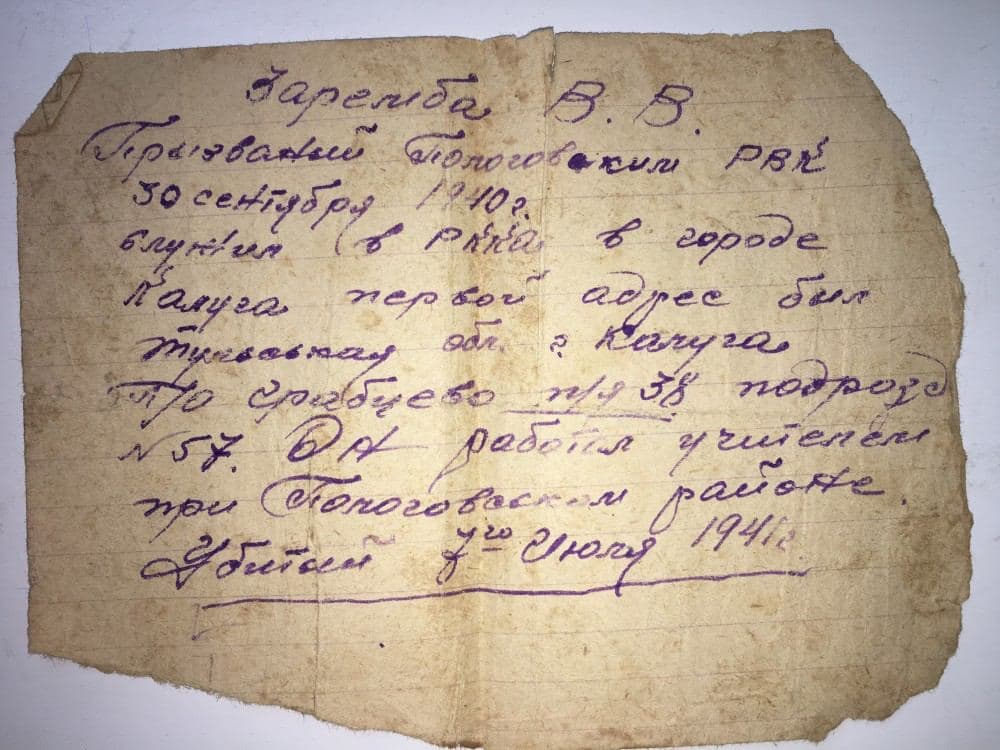 Заремба В. В.
Призваний Пологовским РВК
30 сентября 1940г.
служил в РККА в городе
Калуга первой адрес был
Тульськая обл. г Калуга
П/О Грабцево п/я 38 подрозд
N 57. Он работал учителем
при Пологовськом районе.
Убитий 7го Июля 1941г.